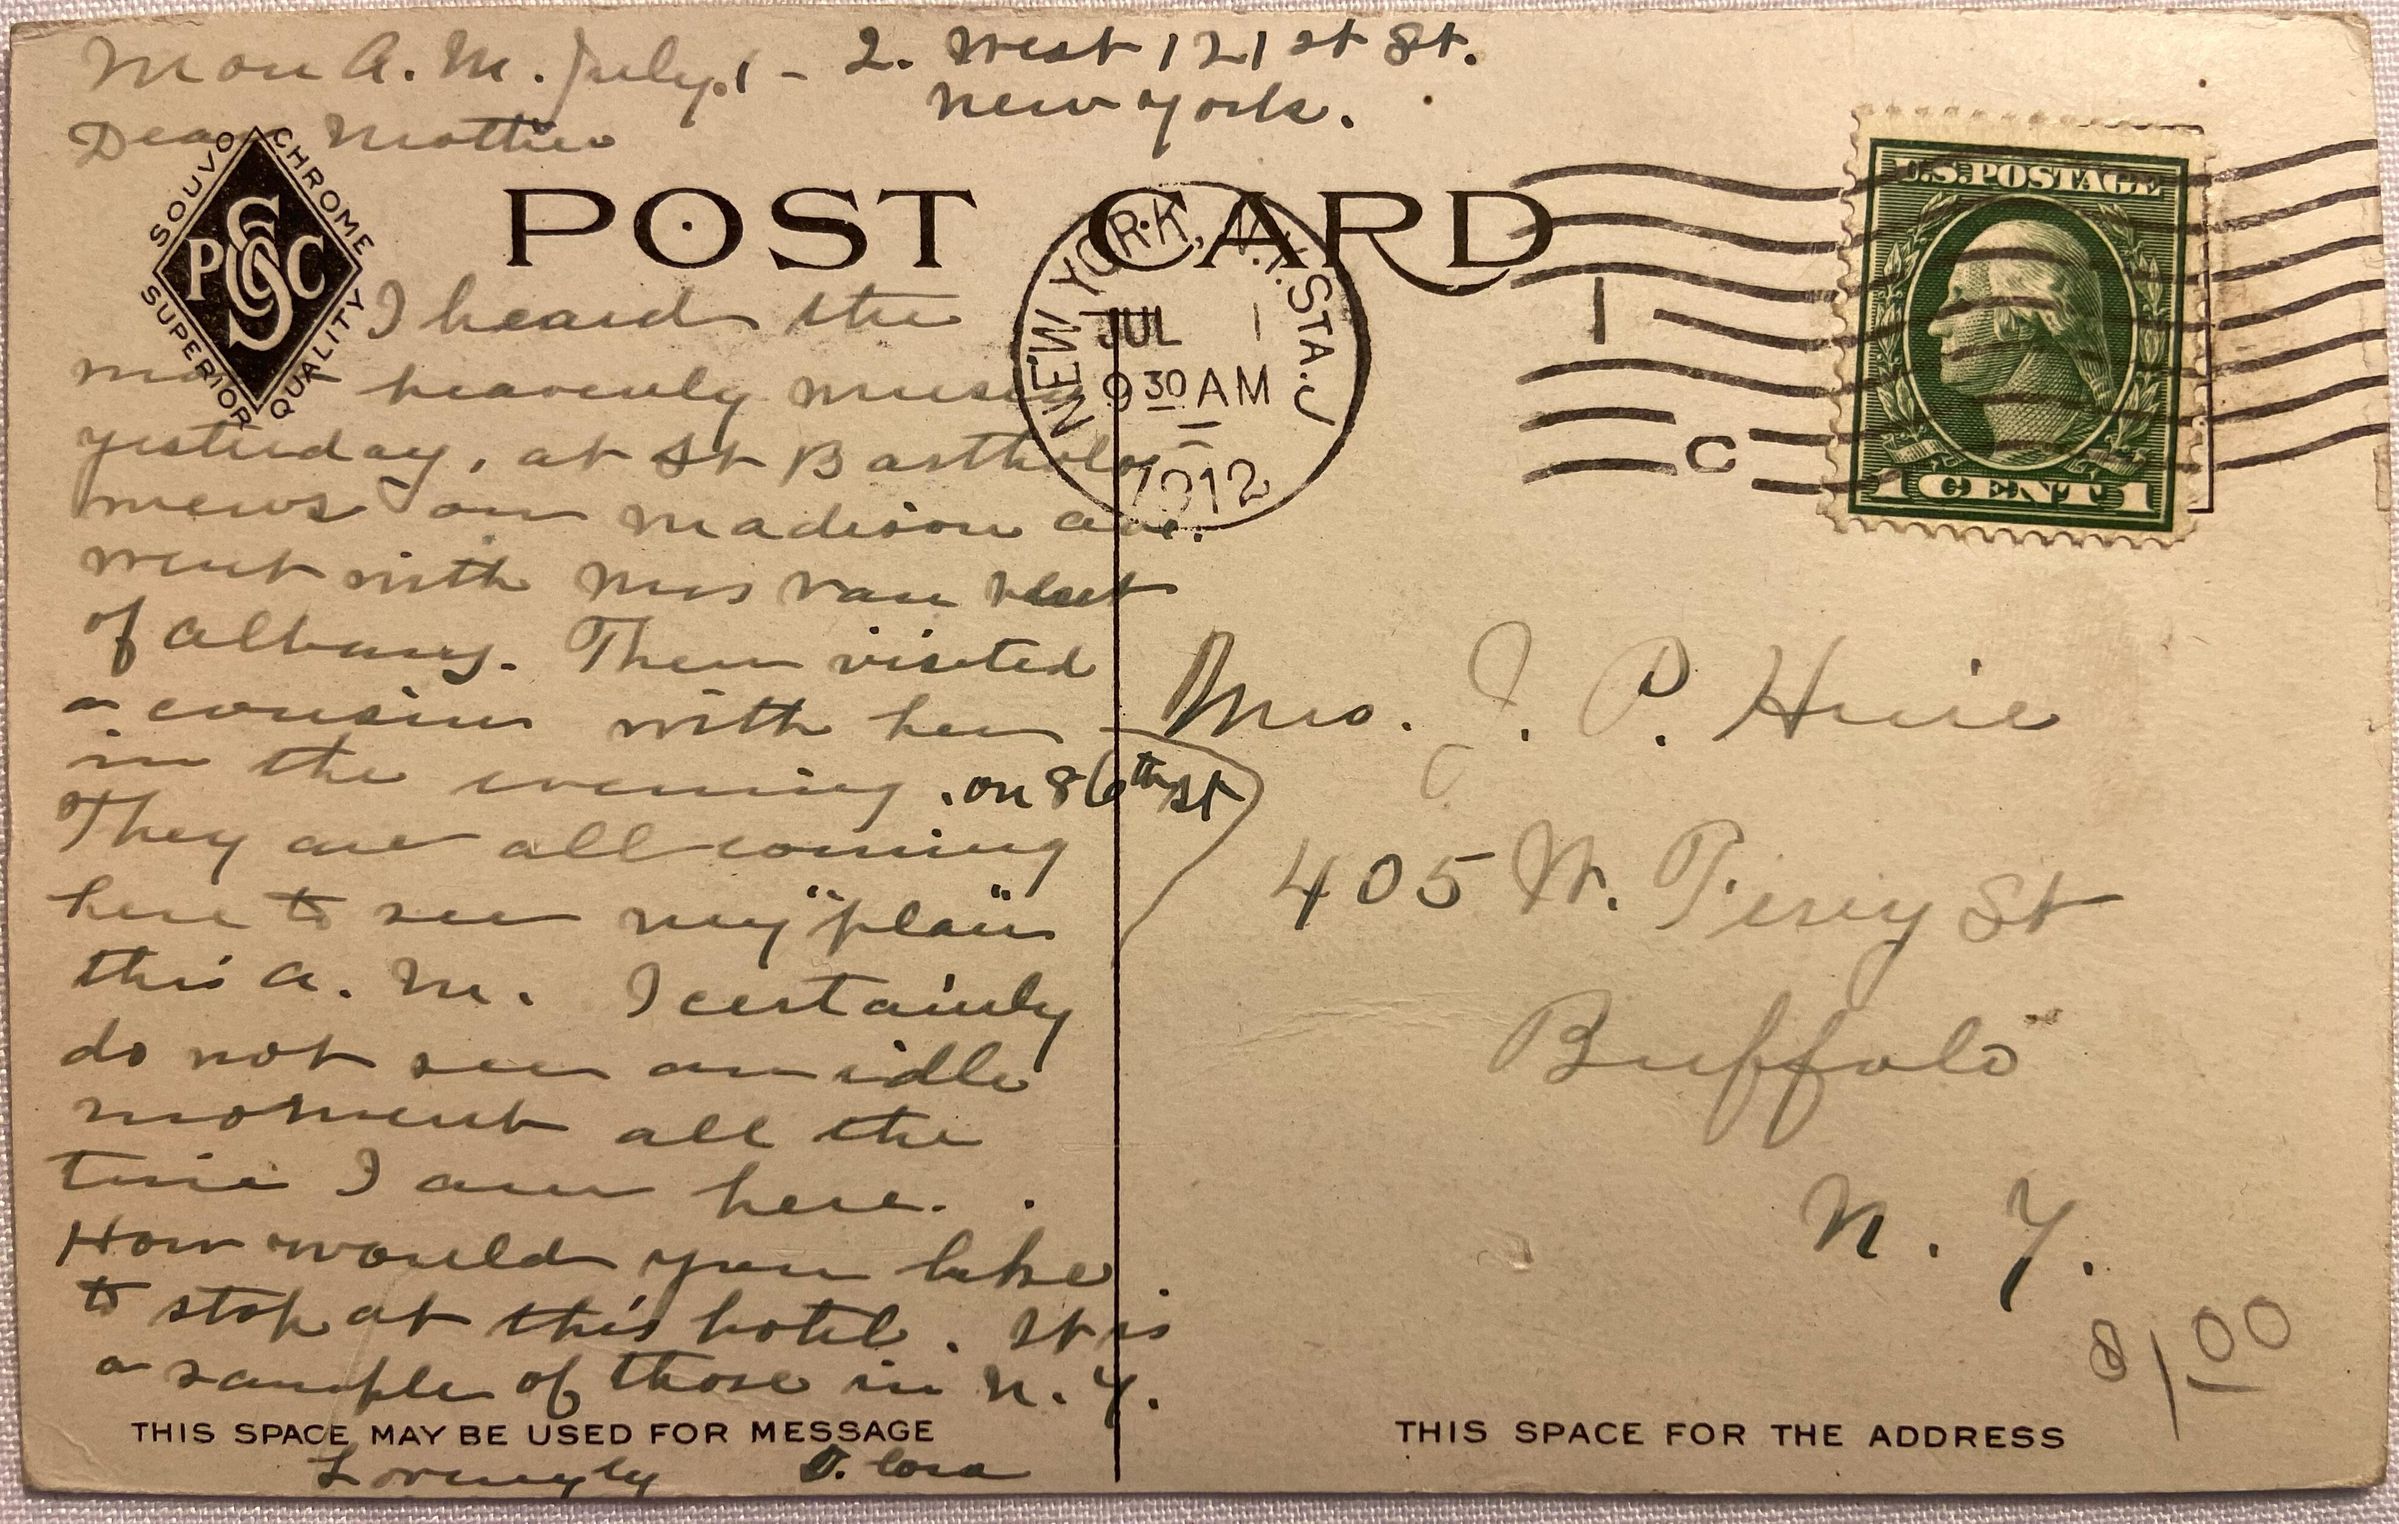 Mon A.M. July.1 - 2. West 121st St.
New York.
Dear Mother
SOUVOCHROME
P S C Co
SUPERIOR QUALITY
POST CARD
NEW YORK, N.Y. STA. J
JUL 1
9 30 AM
1912
1
C
U.S. POSTAGE
1 CENT 1
I heard the
most heavenly music
yesterday, at St Bartholo
mews on Madison Ave.
went with Mrs Van
of Albany. Then visited
a cousin with her
in the evening. on 86th St
They are all coming
here to see my "plain"
this A.M. I certainly
do not see an idle
moment all the
time I am here.
How would you like
to stop at this hotel. It is
a sample of those in N.Y.
THIS SPACE MAY BE USED FOR MESSAGE
Lovingly
Mrs. J. P. Huie
405 W. Ferry St
Buffalo
N.Y.
8/1 00
THIS SPACE FOR THE ADDRESS